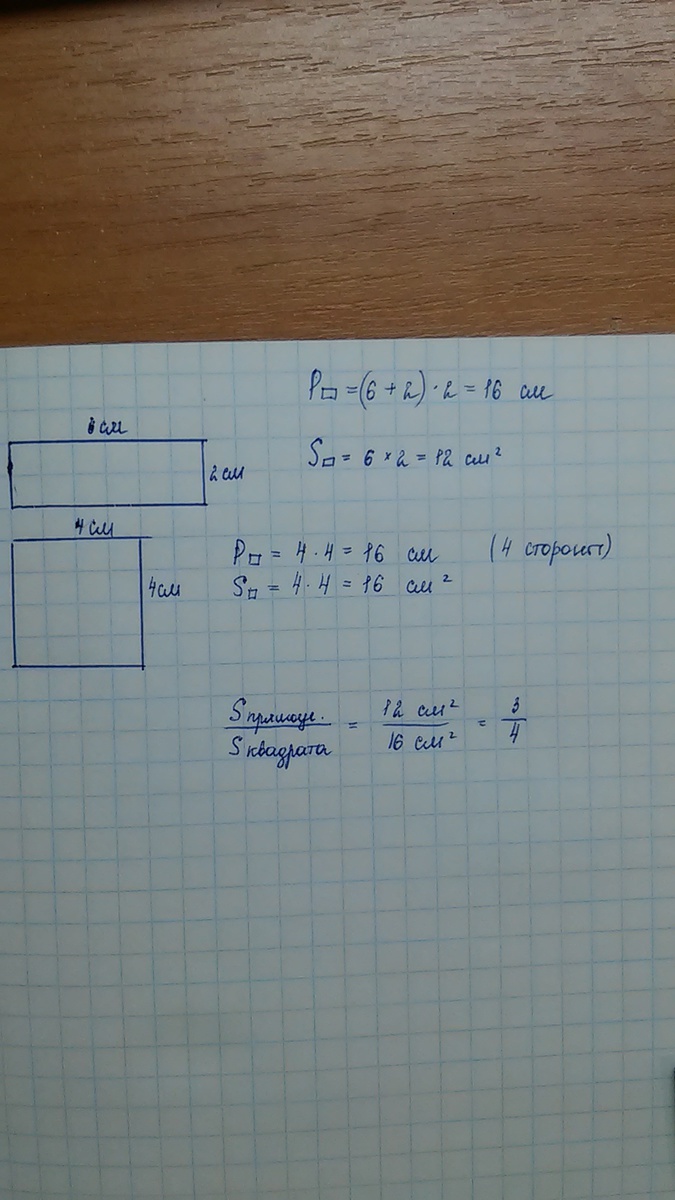 P□ = (6 + 2) · 2 = 16 см
6 см
S□ = 6 × 2 = 12 см²
2 см
4 см
P□ = 4 · 4 = 16 см (4 стороны)
4 см
S□ = 4 · 4 = 16 см²
S прямоуг. / S квадрата = 12 см² / 16 см² = 3 / 4